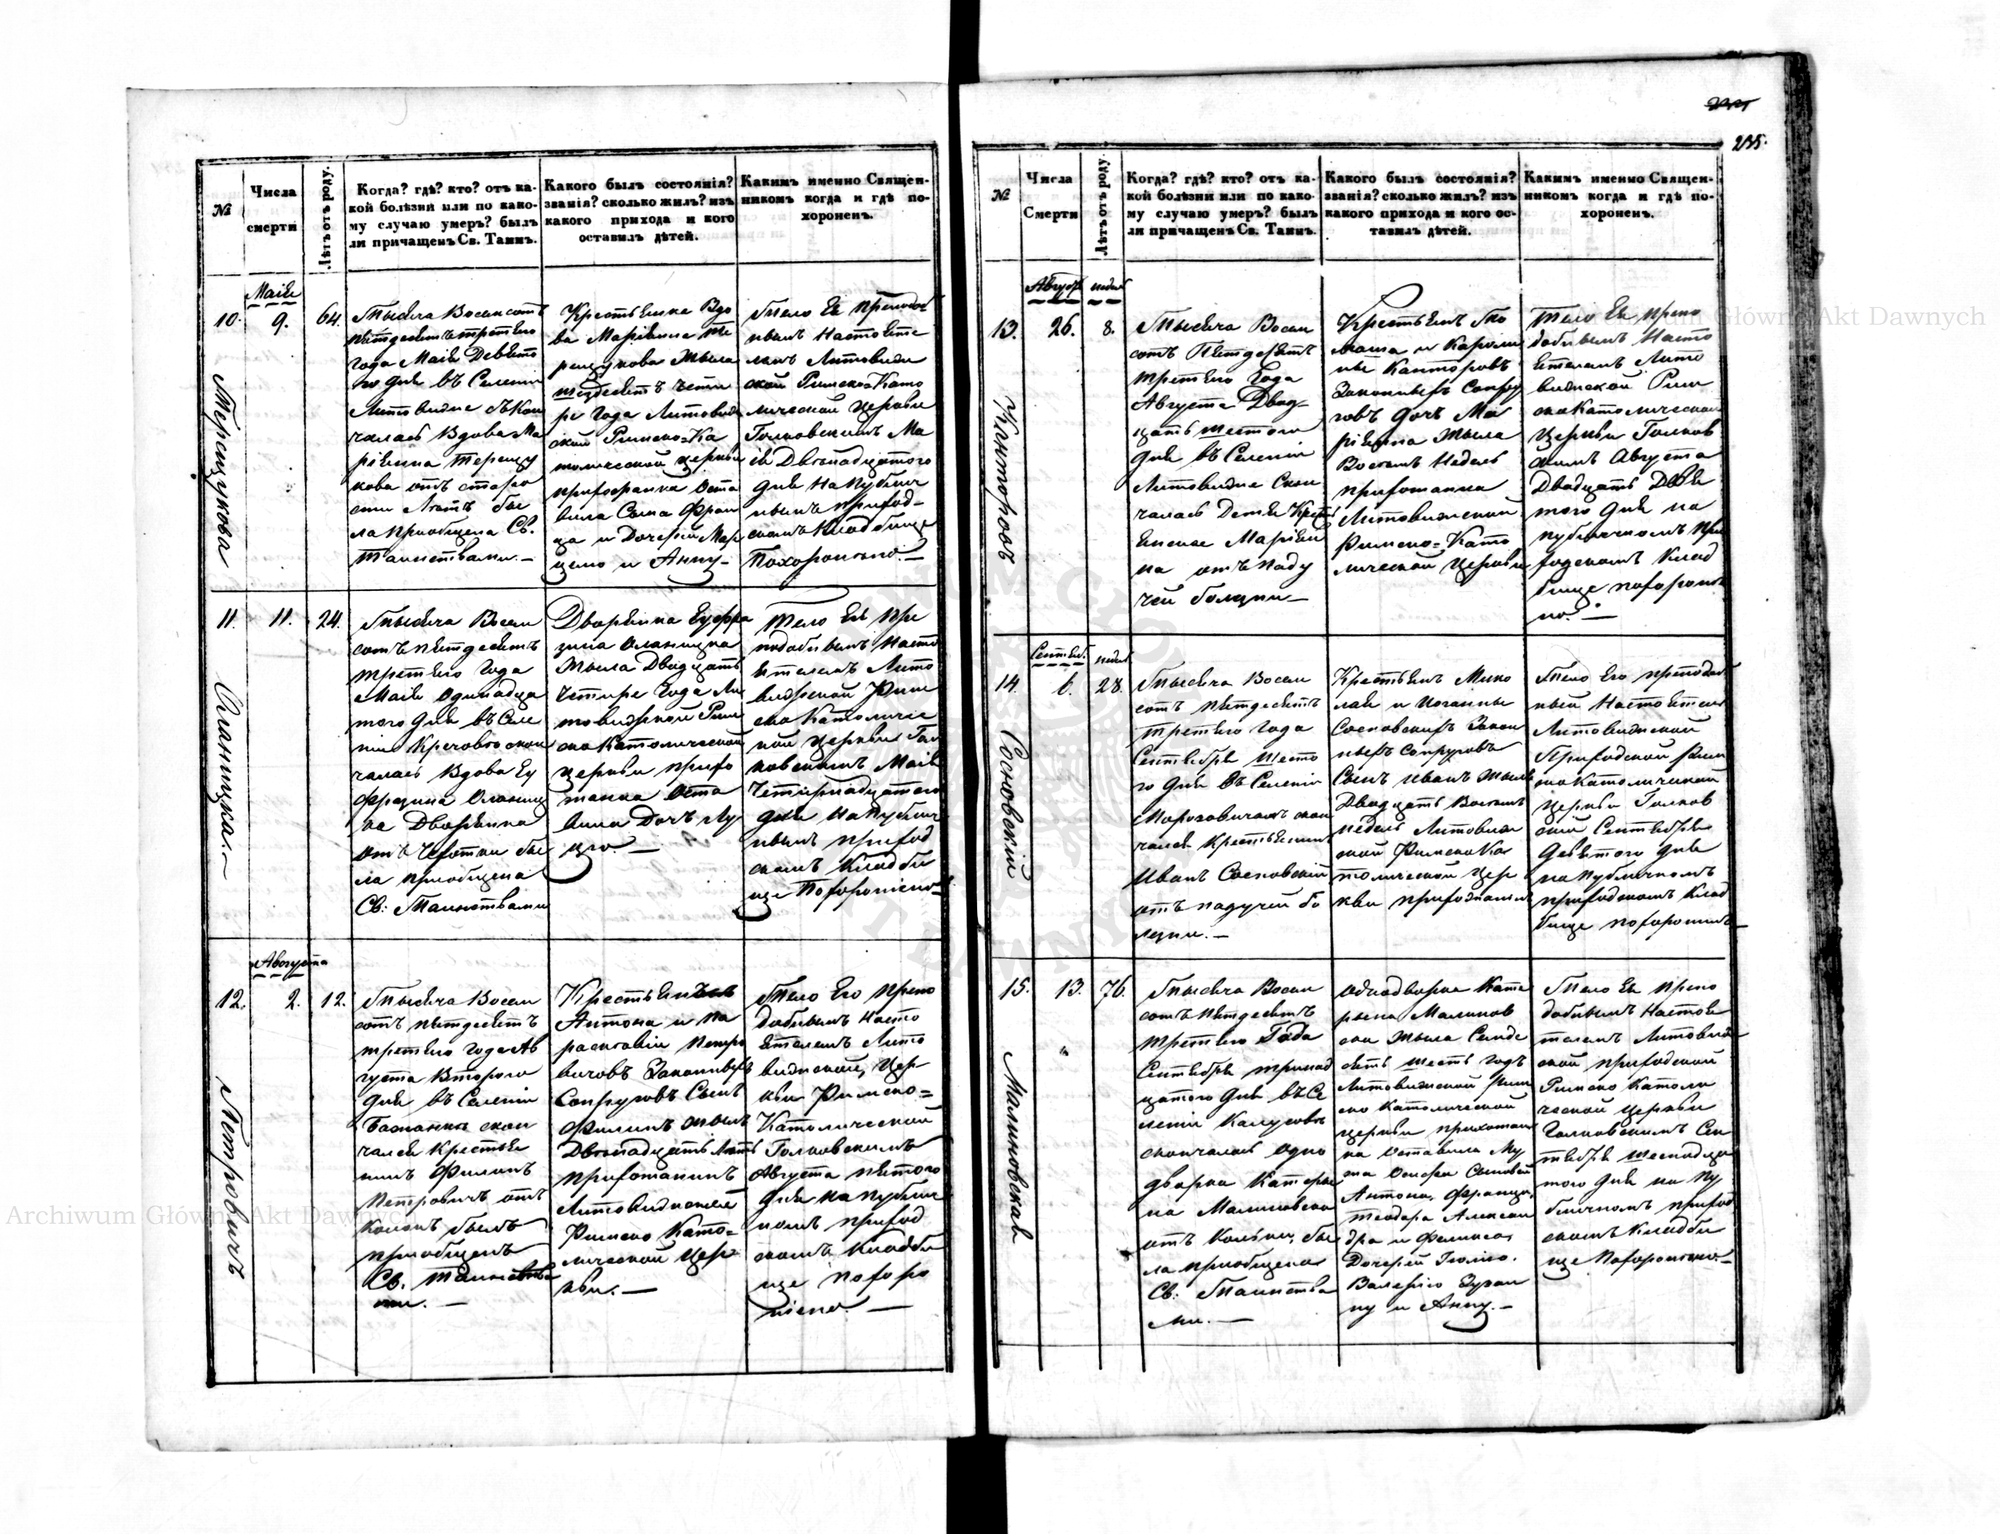 №
Числа
смерти
Лѣтъ отъ роду.
Когда? гдѣ? кто? отъ ка-
кой болѣзни или по како-
му случаю умеръ? былъ
ли причащенъ Св. Таинъ.
Какого былъ состоянія?
званія? сколько жилъ? изъ
какого прихода и кого
оставилъ дѣтей.
Какимъ именно Священ-
никомъ когда и гдѣ по-
хороненъ.
10.
Маія
9.
64.
Терещукова
Тысяча Восемсотъ
пятдесятъ третьего
года Маія Девято
го дня въ Селеніи
Литовидне скон
чалась Вдова Ма
ріянна Терещу
кова отъ старо
сти Лѣтъ бы
ла приобщена Св.
Таинствами.—
Крестьянка Вдо
ва Маріянна Те
рещукова Жила
шездесятъ чети
ре года Литовид
ской Римско=Ка
толической церкви
прихожанка Оста
вила Сына Фран
ца и Дочерей Мар
целю и Анну—
Тело Ея Преподоб
нымъ Настояте
лемъ Литовидн
ской Римско=Като
лической Церкви
Голковскимъ Ма
ія Двенадцятого
дня На публич
нымъ приход-
скомъ Кладбище
Похоронено—
11.
11.
24.
Оланицка.—
Тысяча Восем
сотъ пятдесятъ
третьего Года
Маія одинадца
того дня въ Селе
ніи Кречовъ скон
чалась Вдова Еу
фрозина Оланиц
ка Дворянка
отъ Чехотки бы
ла приобщена
Св: Таинствами
Дворянка Еуфро
зина Оланицка
Жила Двадцать
Четире Года Ли
товидской Рим
ско Католической
церкви прихо
жанка Оста
вила Дочъ Лу
цію.—
Тело Ея Пре
подобнымъ Насто
ятелемъ Лито
видской Рим
ско Католиче
ской Церкви Гол
ковскимъ Маія
Четирнадцатого
дня На публич
нымъ приход
скомъ Кладби
ще Похоронено—
12.
Августа
2.
12.
Петровичъ
Тысяча Восем
сотъ пятдесятъ
третьего года Ав
густа Второго
дня въ Селеніи
скон
чался Крестья
нинъ Филипъ
Петровичъ отъ
былъ
приобщенъ
Св. Таинства
ми.—
Крестьянъ
Антона и Па
раскевіи Петро
вичовъ Законныхъ
Супруговъ Сынъ
Филипъ жилъ
Двенадцать Лѣтъ
прихожанинъ
Литовиднской
Римско Като-
лической Цер
кви.—
Тело Его Препо
добнымъ Насто
ятелемъ Лито
виднской, Цер
кви Римско=
Католической
Голковскимъ
Августа пятого
дня на публич
номъ приход
скомъ Кладби
ще похоро
нено.—
235.
№
Числа
Смерти
Лѣтъ отъ роду.
Когда? гдѣ? кто? отъ ка-
кой болѣзни или по како-
му случаю умеръ? былъ
ли причащенъ Св. Таинъ.
Какого былъ состоянія?
званія? сколько жилъ? изъ
какого прихода и кого ос-
тавилъ дѣтей.
Какимъ именно Священ-
никомъ когда и гдѣ по-
хороненъ.
13.
Август
26.
недел
8.
Канторовъ
Тысяча Восем
сотъ Пятдесятъ
третьего Года
Августа Двад-
цать шестого
дня въ Селеніи
Литовидне Скон
чалась Дитя Кресть
янское Маріян
на отъ паду
чей болѣзни—
Крестьянъ То
маша и Кароли
ны Канторовъ
Законныхъ Супру
говъ дочъ Ма
ріянна Жила
Восемъ Недель
прихожанка
Литовидиской
Римско=Като
лической Церкви
Тело Ея Препо
добнымъ Насто
ятелемъ Лито
видиской Рим
ско Католической
Церкви Голков
скимъ Августа
Двадцать Девя
того дня на
публичномъ при
ходскомъ Клад
бище похороне
но.—
14.
Сентяб.
6.
недел
28.
Сосновскій
Тысяча Восем
сотъ пятдесятъ
третьего года
Сентября Шесто
го дня въ Селеніи
Морозовичахъ скон
чался Крестьянинъ
Иванъ Сосновскій
отъ падучей бо
лезни.—
Крестьянъ Мико
лая и Иоганны
Сосновскихъ Закон
ныхъ Супруговъ
Сынъ Иванъ жилъ
Двадцать Восемъ
недель Литовидн
ской Римско Ка
толической Цер
кви прихожанинъ
Тело Его преподоб
ный Настоятель
Литовидиской
Приходской Рим
ско Католической
Церкви Голков
ский Сентября
Девятого дня
на публичномъ
приходскомъ Клад
бище похоронилъ—
15.
13.
76.
Малиновская
Тысяча Восем
сотъ пятдесятъ
третьего Года
Сентября тринад
цатого дня въ Се
леніи Калусовъ
скончалась Одно
дворка Катеры
на Малиновска
отъ Кольки, бы
ла приобщена
Св: Таинства
ми.—
однодворка Кате
рына Малинов
ска Жыла Семде
сятъ шесть годъ
Литовидиской Рим
ско Католической
церкви прихожан
ка Оставила Му
жа Осифа Сыновей
Антона, Франца,
Теодора Алексан
дра и Феликса,
Дочерей Теклю.
Валерію Еуфро
ну и Анну.—
Тело Ея Препо
добнымъ Настоя
телемъ Литовидн
ской приходской
Римско Католи
ческой Церкви
Голковскимъ Сен
тября шеснадца
того дня на пу
бличномъ приход
скомъ Кладби
ще Похоронено—
Archiwum Główne Akt Dawnych
Archiwum Główne Akt Dawnych